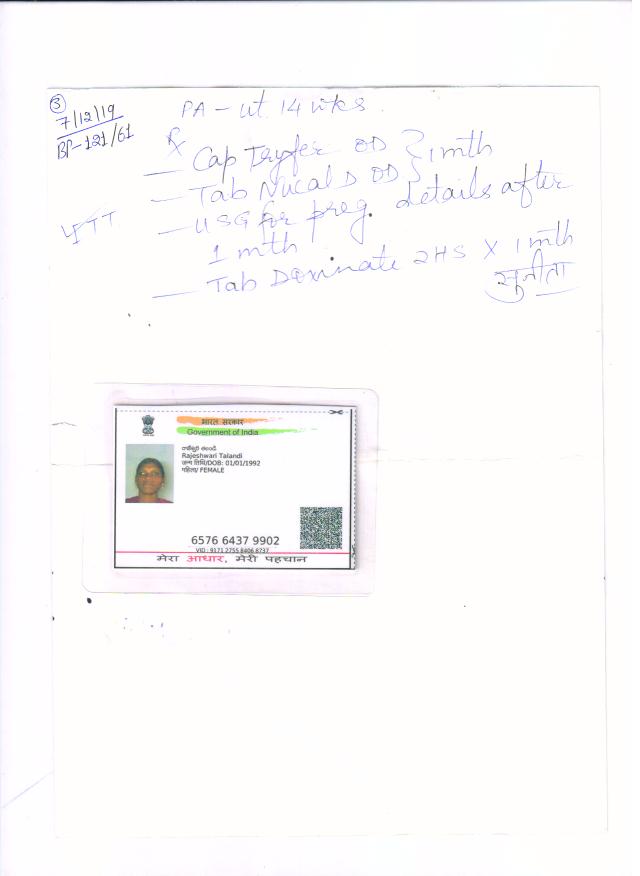 ③
7/12/19
BP-121/61
PA - ut 14 wks.
Rx
— Cap Tryfer OD } 1 mth
— Tab Nucal D OD }
— USG for preg. details after
1 mth
— Tab Doxinate 2HS X 1 mth
सुनीता
भारत सरकार
Government of India
Rajeshwari Talandi
जन्म तिथि/DOB: 01/01/1992
महिला/ FEMALE
6576 6437 9902
VID : 9171 2755 8406 8737
मेरा आधार, मेरी पहचान